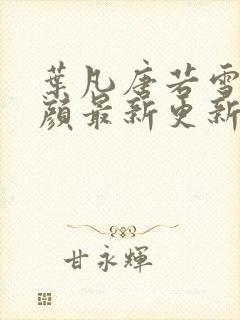 葉凡唐若雪
顏最新更新
甘永輝